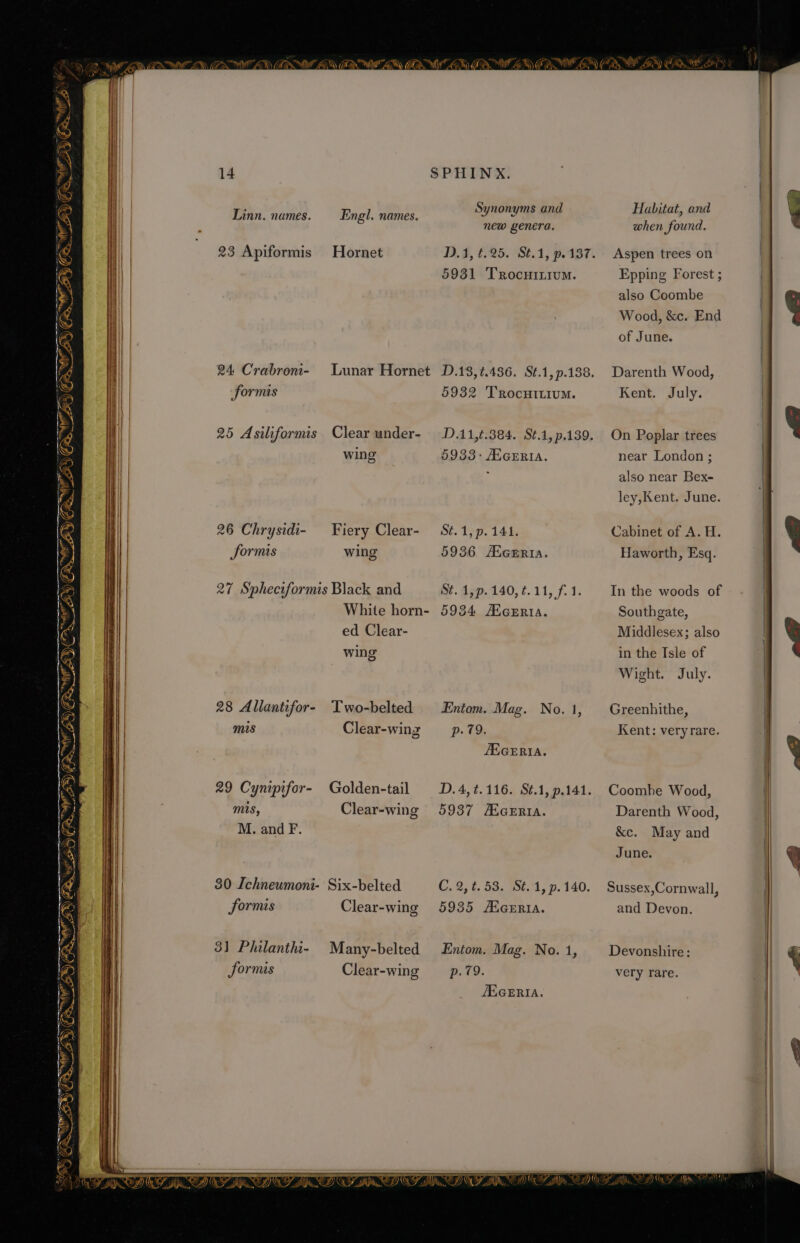 14 SPHINX.
Linn. names. Engl. names. Synonyms and new genera. Habitat, and when found.
23 Apiformis Hornet D.1, t.25. St.1, p.137. Aspen trees on
5931 TROCHILIUM. Epping Forest ;
also Coombe
Wood, &c. End
of June.
24 Crabroni- Lunar Hornet D.13,t.436. St.1,p.138. Darenth Wood,
formis 5932 TROCHILIUM. Kent. July.
25 Asiliformis Clear under- D.11,t.384. St.1,p.139. On Poplar trees
wing 5933 ÆGERIA. near London ;
also near Bex-
ley,Kent. June.
26 Chrysidi- Fiery Clear- St.1,p.141. Cabinet of A. H.
formis wing 5936 ÆGERIA. Haworth, Esq.
27 Spheciformis Black and St. 1,p.140,t.11, f. 1. In the woods of
White horn- 5934 ÆGERIA. Southgate,
ed Clear- Middlesex; also
wing in the Isle of
Wight. July.
28 Allantifor- Two-belted Entom. Mag. No. 1, Greenhithe,
mis Clear-wing p.79. Kent: very rare.
ÆGERIA.
29 Cynipifor- Golden-tail D.4,t.116. St.1,p.141. Coombe Wood,
mis, Clear-wing 5937 ÆGERIA. Darenth Wood,
M. and F. &c. May and
June.
30 Ichneumoni- Six-belted C.2,t.53. St.1,p.140. Sussex,Cornwall,
formis Clear-wing 5935 ÆGERIA. and Devon.
31 Philanthi- Many-belted Entom. Mag. No. 1, Devonshire:
formis Clear-wing p.79. very rare.
ÆGERIA.